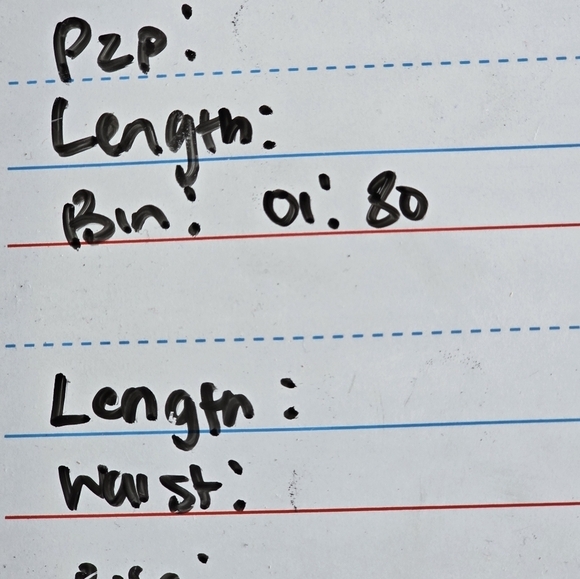 P2P:
Length:
Bin: 01: 80
Length:
Waist: